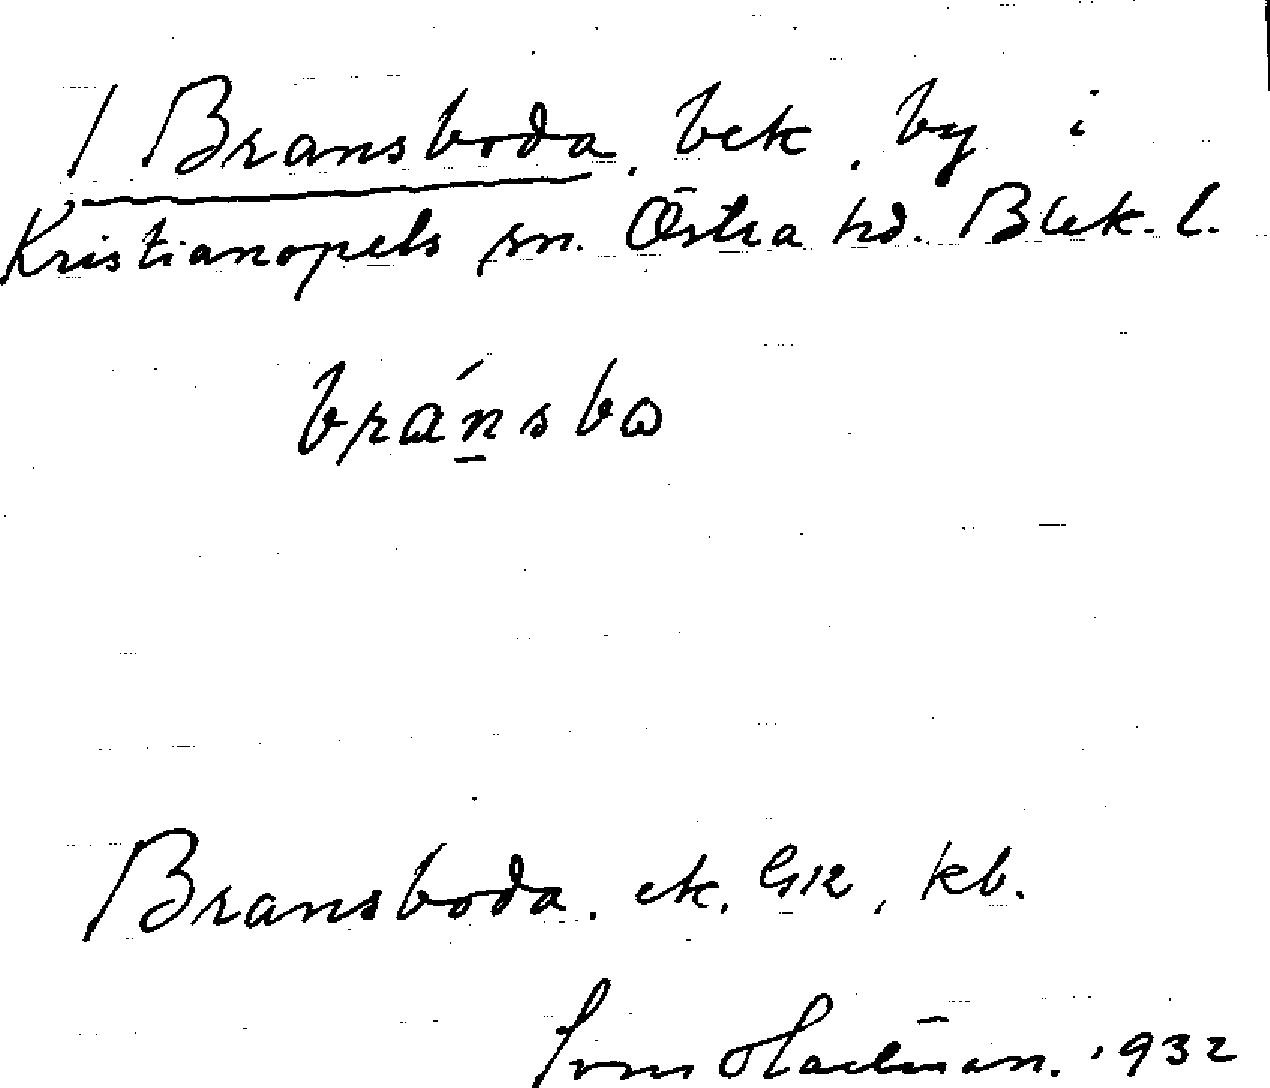 / Bransboda, bek. by i
Kristianopels sn. Östra hd. Blek. l.
bránsbo
Bransboda. ek. GK, kb.
1932